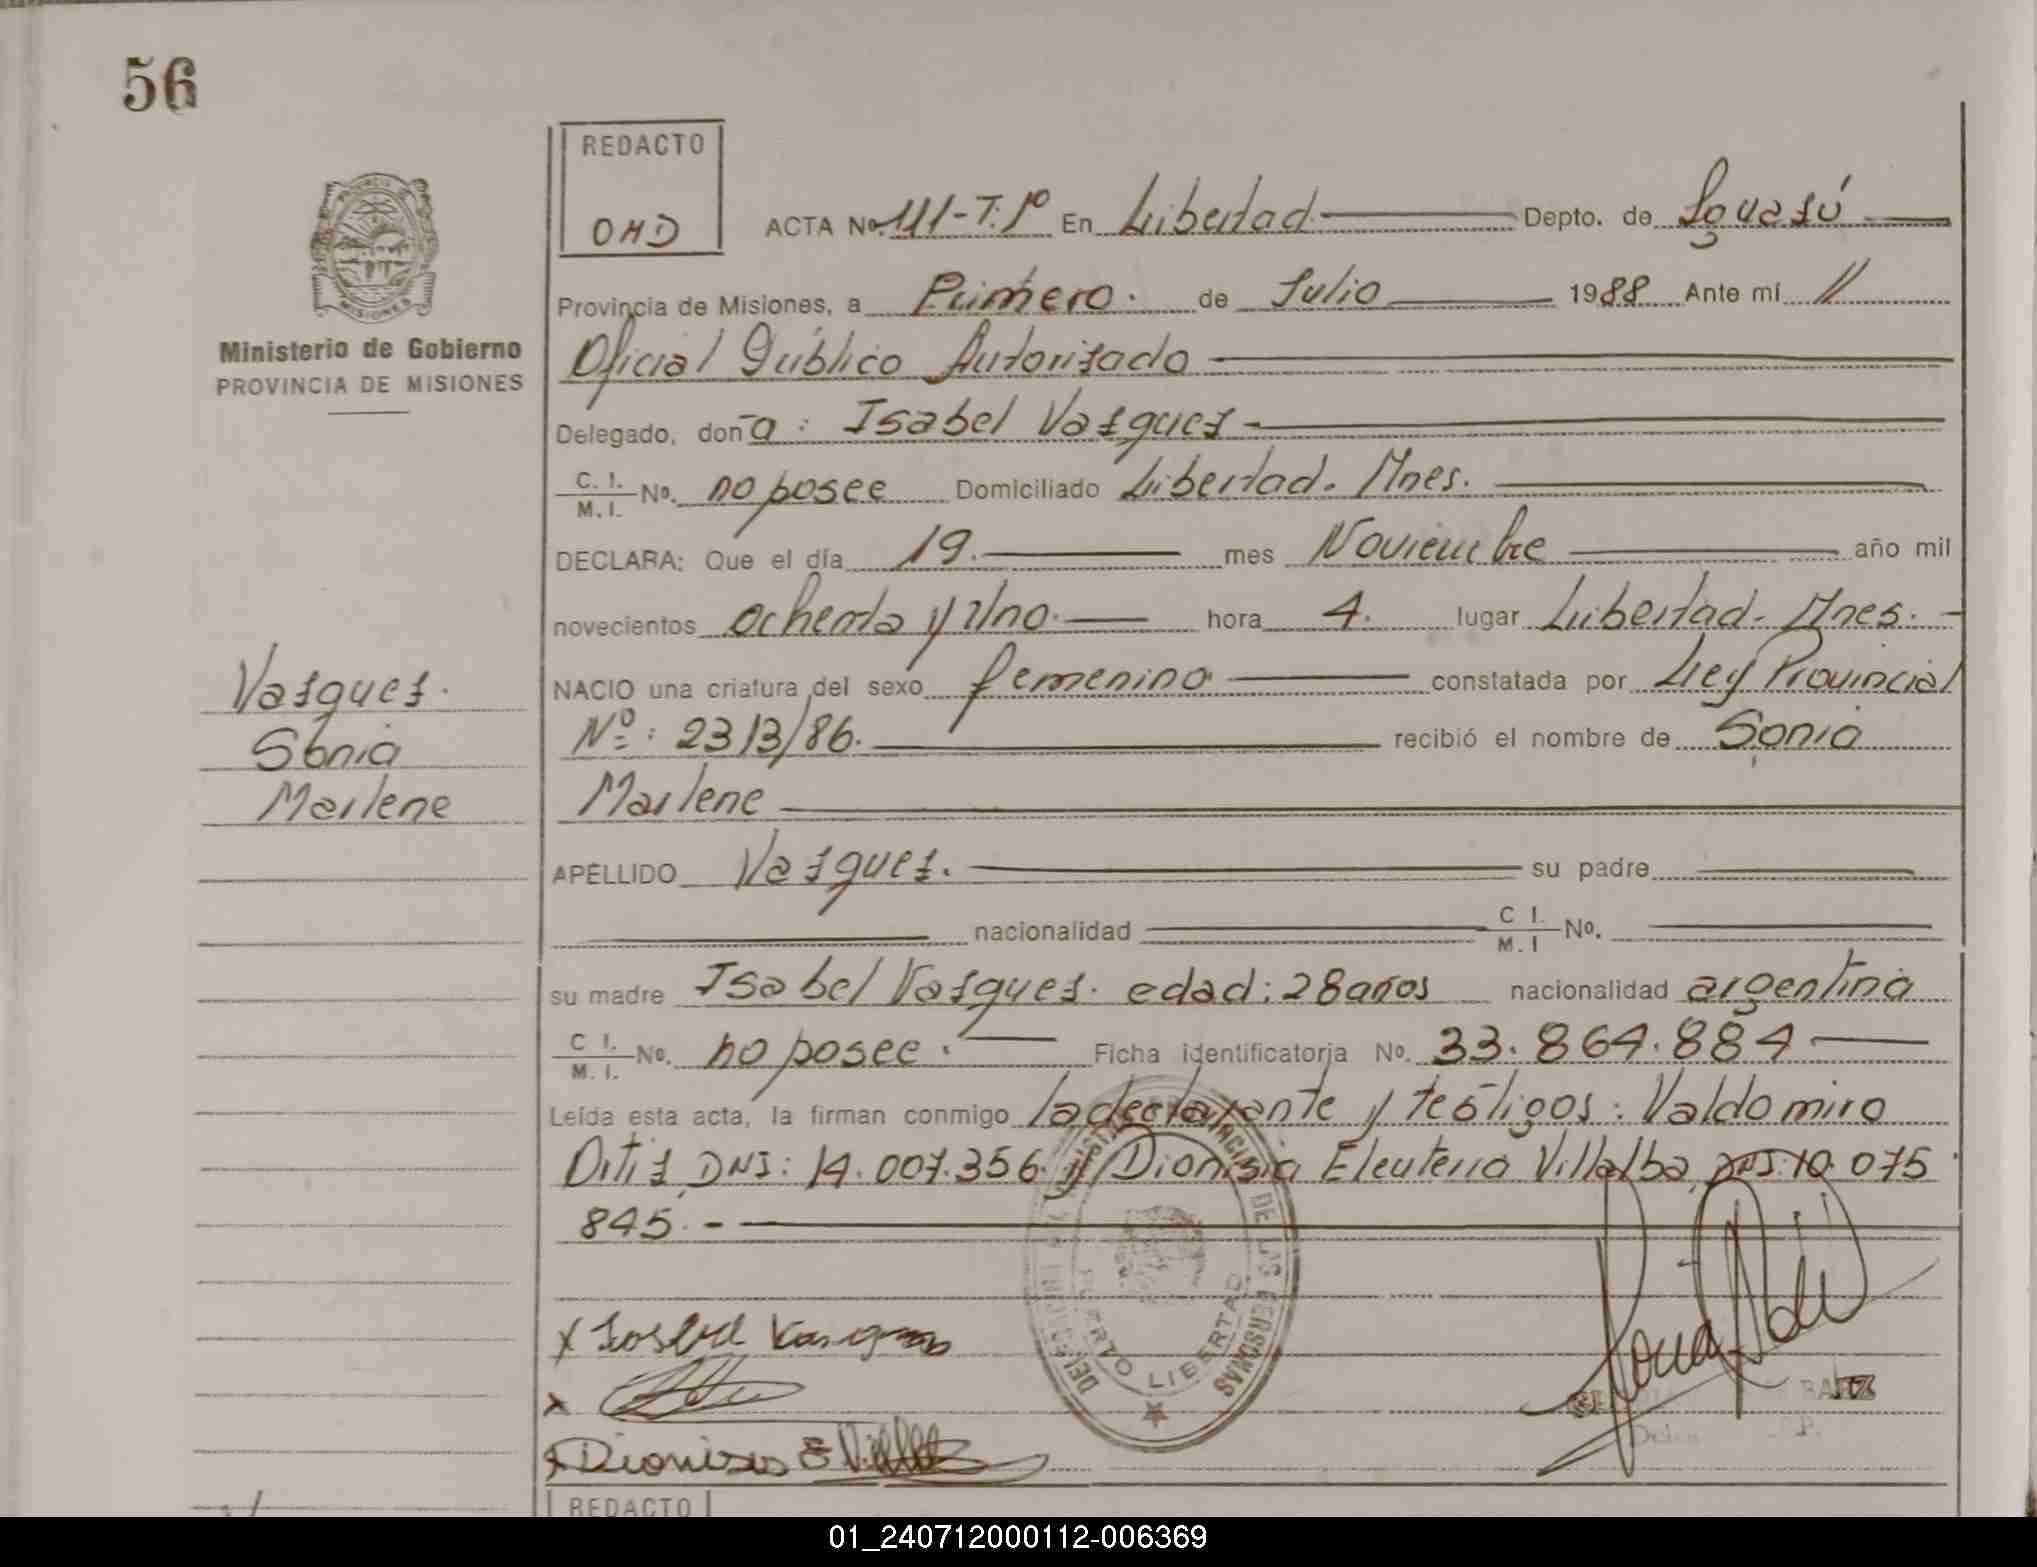 56
REDACTO
OHD
PROVINCIA
MISIONES
Ministerio de Gobierno
PROVINCIA DE MISIONES
Vasques.
Sonia
Marlene
ACTA No. 111-T.1º En Libertad Depto. de Iguazú
Provincia de Misiones, a Primero. de Julio 1988 Ante mí //
Oficial Público Autorizado
Delegado, doña: Isabel Vasques
C. I. M. I. No. no posee Domiciliado Libertad. Mnes.
DECLARA: Que el día 19. mes Noviembre año mil
novecientos ochenta y Uno. hora 4. lugar Libertad. Mnes.
NACIO una criatura del sexo femenino constatada por Ley Provincial
Nº: 2313/86. recibió el nombre de Sonia
Marlene
APELLIDO Vasques. su padre
nacionalidad C I. M. I No.
su madre Isabel Vasques. edad: 28 años nacionalidad argentina
C I. M. I. No. no posee. Ficha identificatoria No. 33.864.884
Leída esta acta, la firman conmigo la declarante y testigos: Valdomiro
DNI: 14.007.356. y Dionisia Eleuteria Villalba, DNI: 10.075
845.-
DE LAS PERSONAS
PUERTO LIBERTAD
x Isabel Vasques
x
x Dionisia E Villalba
REDACTO
01_240712000112-006369